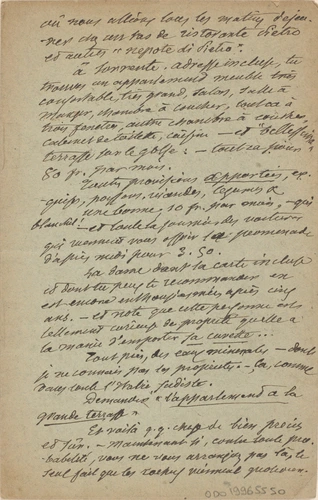 où nous allions tous les matins déjeuner
au un tas de ristorante Pietro
et autres "nepote di Pietro".
à Sorrente, adresse incluse, tu
trouves un appartement meublé très
confortable, très grand, salon, salle à
manger, chambre à coucher, tout ça à
trois fenêtres, autre chambre à coucher,
cabinet de toilette, cuisine — et
terrasse sur le golfe: — tout ça pour
80 fr. par mois.
Toutes provisions apportées, ex-
quis, poissons, viandes, légumes &
une bonne, 10 fr. par mois, — qui
blanchit! — et toute la journée des voituriers
qui viennent vous offrir la promenade
d'après midi pour 2.50.
La dame dont la carte incluse
et dont tu peux te recommander en
est encore enthousiasmée, après cinq
ans. — et note que cette personne est
tellement curieuse de propreté qu'elle a
la manie d'emporter sa cuvette...
Tout près, des eaux minérales — dont
je ne connais pas les propriétés. — là, comme
dans toute l'Italie sudiste.
Demander "l'appartement à la
grande terrasse"
Et voilà q.q. chose de bien précis
et sûr. — maintenant si, contre toute pro-
babilité, vous ne vous arrangiez pas là, le
seul fait que les
ODO 1996 55 50